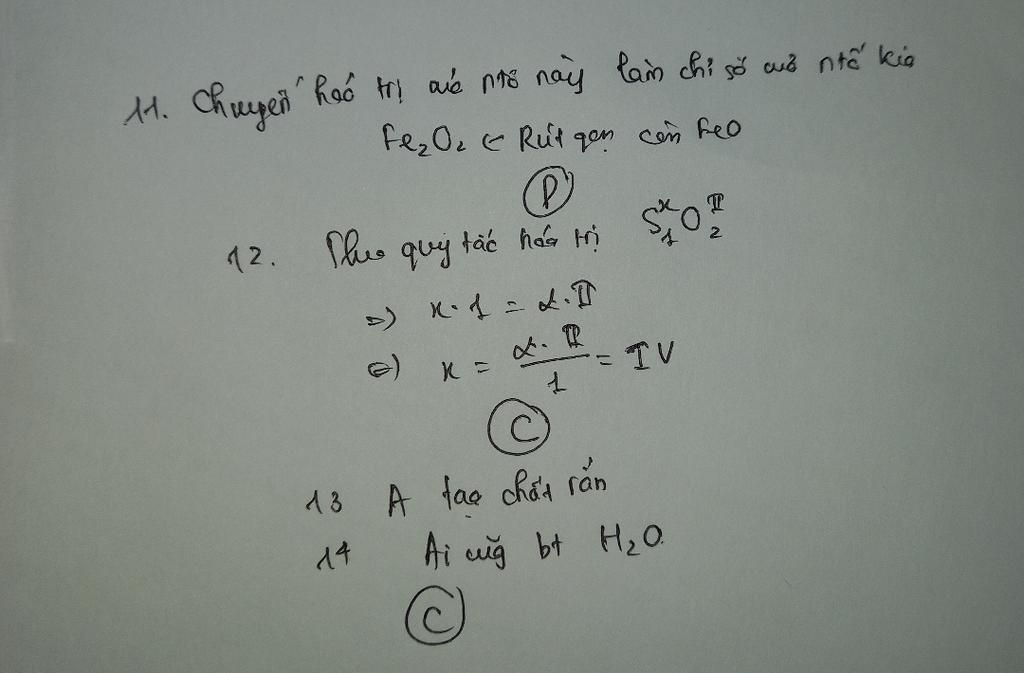 11. Chuyển hoá trị của ntố này làm chỉ số của ntố kia
Fe₂O₂ ← Rút gọn còn FeO
D
12. Theo quy tắc hóa trị S₁ˣO₂ᴵᴵ
=> x.1 = 2.II
<=> x = 2.II / 1 = IV
C
13 A tạo chất rắn
14 Ai cũg bt H₂O
C